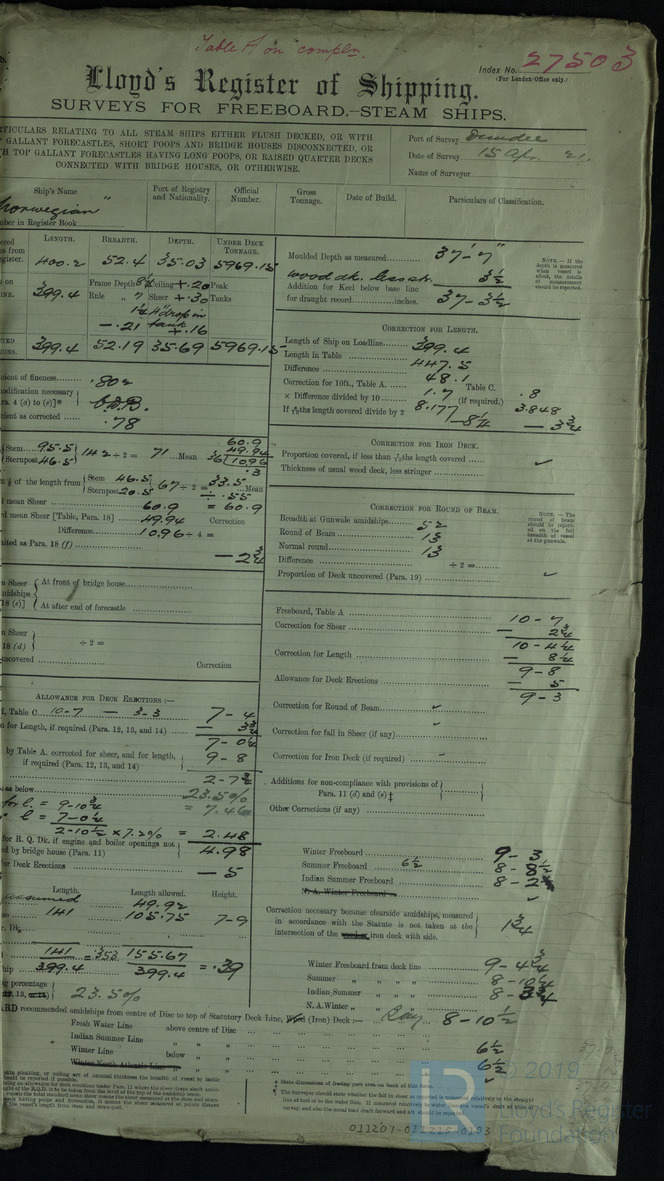 Table A on compln.
Index No. 27503
(For London Office only.)
Lloyd's Register of Shipping.
SURVEYS FOR FREEBOARD.—STEAM SHIPS.
PARTICULARS RELATING TO ALL STEAM SHIPS EITHER FLUSH DECKED, OR WITH
GALLANT FORECASTLES, SHORT POOPS AND BRIDGE HOUSES DISCONNECTED, OR
TOP GALLANT FORECASTLES HAVING LONG POOPS, OR RAISED QUARTER DECKS
CONNECTED WITH BRIDGE HOUSES, OR OTHERWISE.
Port of Survey Dundee
Date of Survey 15 Apr. 21.
Name of Surveyor
Ship's Name
Port of Registry and Nationality.
Official Number.
Gross Tonnage.
Date of Build.
Particulars of Classification.
Norwegian"
Number in Register Book
LENGTH. BREADTH. DEPTH. UNDER DECK TONNAGE.
400.2 52.4 35.03 5969.15
399.4
Frame Depth 8¼ Ceiling +.20 Peak
Rule „ 7 Sheer +.30 Tanks
1¼ 4" drop in tank
—.21 +.16
399.4 52.19 35.69 5969.15
Moulded Depth as measured 37'-7"
wood dk. less st. 3½
Addition for Keel below base line
for draught record inches. 37-3½
NOTE.—If the depth is measured when vessel is afloat, the details of measurement should be reported.
CORRECTION FOR LENGTH.
Length of Ship on Loadline 399.4
Length in Table 447.5
Difference 48.1
Correction for 10ft., Table A. 1.7 Table C. .8
× Difference divided by 10 8.177 (if required.) 3.848
If 6/10ths length covered divide by 2 —8¼ —3¾
coefficient of fineness .802
modification necessary
Para. 4 (a) to (e)]*
coefficient as corrected .78
Stem 95.5
Sternpost 46.5
142 ÷ 2 = 71 Mean
60.9
49.94
10.96
of the length from Stem 46.5
Sternpost 20.5
67 ÷ 2 = 33.5 Mean
÷ .55
= 60.9
mean Sheer 60.9
mean Sheer [Table, Para. 18] 49.94 Correction
Difference 10.96 ÷ 4 =
limited as Para. 18 (f) —2¾
CORRECTION FOR IRON DECK.
Proportion covered, if less than 7/10ths length covered
Thickness of usual wood deck, less stringer
CORRECTION FOR ROUND OF BEAM.
Breadth at Gunwale amidships 52
Round of Beam 13
Normal round 13
Difference ÷ 2 =
Proportion of Deck uncovered (Para. 19)
NOTE.—The round of beam should be reported on the full breadth of vessel at the gunwale.
Sheer At front of bridge house
amidships
18 (e)] At after end of forecastle
Sheer
18 (d) ÷ 2 =
uncovered Correction
Freeboard, Table A 10-7
Correction for Sheer — 2¾
10-4¼
Correction for Length — 8¼
9-8
Allowance for Deck Erections — 5
9-3
Correction for Round of Beam
Correction for fall in Sheer (if any)
Correction for Iron Deck (if required)
Additions for non-compliance with provisions of
Para. 11 (d) and (e)‡
Other Corrections (if any)
ALLOWANCE FOR DECK ERECTIONS :—
Table C 10-7 — 3-3 7-4
for Length, if required (Para. 12, 13, and 14) — 3¾
7-0¼
by Table A, corrected for sheer, and for length,
if required (Para. 12, 13, and 14) 9-8
2-7¾
as below 23.5%
for l = 9-10¾ = 7.46
l = 7-0¼
2-10½ × 7.2% = 2.48
for R. Q. Dk. if engine and boiler openings not
by bridge house (Para. 11) 4.98
for Deck Erections — 5
Length. Length allowed. Height.
assumed 49.92
141 105.75 7-9
141 = .353 155.67
399.4 399.4 = .39
percentage 23.5%
Winter Freeboard 9-3
Summer Freeboard 6½ 8-8½
Indian Summer Freeboard 8-2
N. A. Winter Freeboard
Correction necessary because clearside amidships, measured
in accordance with the Statute is not taken at the
intersection of the iron deck with side. 1¾
Winter Freeboard from deck line 9-4¾
Summer „ „ „ 8-10¼
Indian Summer „ „ 8-3¾
N. A. Winter „ „
recommended amidships from centre of Disc to top of Statutory Deck Line, (Iron) Deck :— 8-10½
Fresh Water Line above centre of Disc 6½
Indian Summer Line „ „ 6½
Winter Line below „
Winter North Atlantic Line „ „
‡ State dimensions of freeing port area on back of this form.
011207-011215-0103
© 201
Lloyd's Register
Foundation